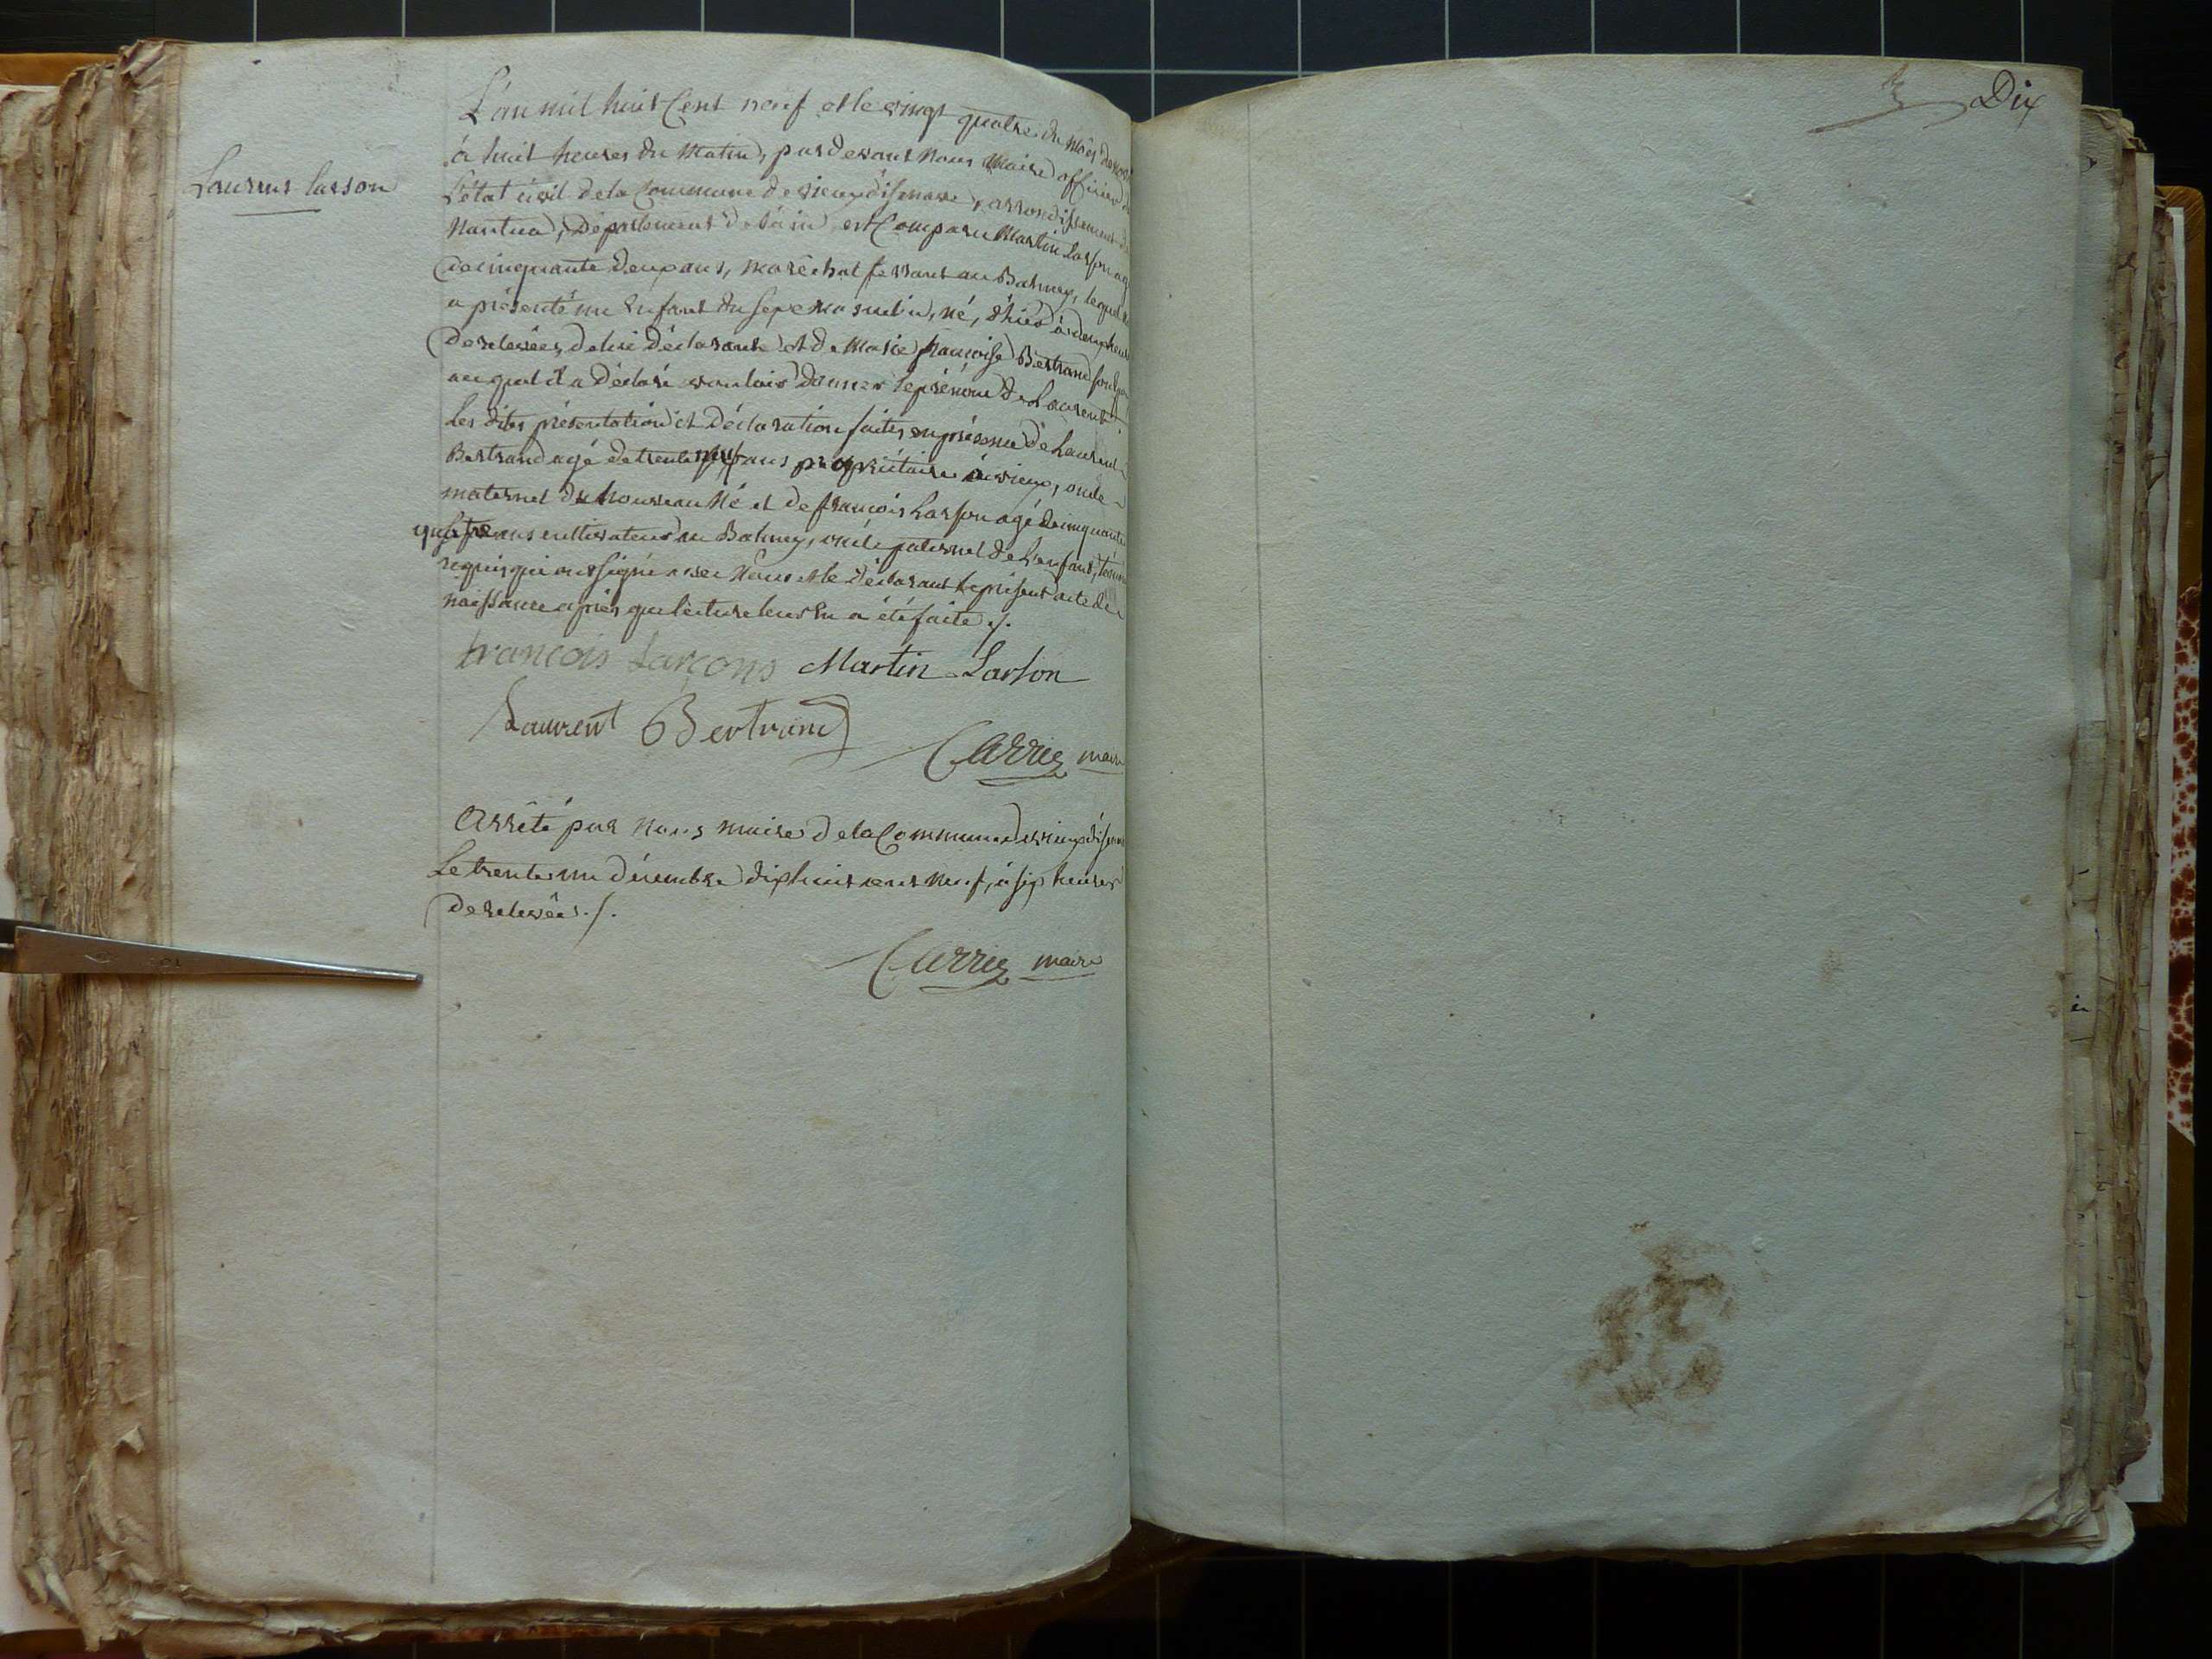 Laurent Larson
L'an mil huit Cent neuf et le vingt quatre du mois de
à huit heures du Matin, pardevant Nous Maire officier de
L'état civil de la Commune de vieuxdisenave, arrondissement de
Nantua, Département de L'ain, est Comparu Martin Larson agé
de cinquante deux ans, maréchal ferrant au Balmey, lequel
a présenté un Enfant du sexe masculin, né, d'hier à deux heures
de relevées, de lui déclarant et de Marie françoise Bertrand son
auquel il a déclaré vouloir donner le prénom de Laurent.
Les dites présentation et Déclaration faites en présence de Laurent
Bertrand agé de trente neuf ans propriétaire à vieux, oncle
maternel du Nouveau Né et de françois Larson agé de cinquante
quatre ans cultivateur au Balmey, oncle paternel de L'enfant, témoins
requis qui ont signé avec Nous et le déclarant le présent acte de
naissance après que lecture leur En a été faite ./.
francois Larcons Martin Larson
Laurent Bertrand
Carrier maire
Arrêté par Nous maire de la Commune de vieuxdisenave
Le trente un décembre dix huit cent neuf, à six heures
de relevées ./.
Carrier maire
Dix